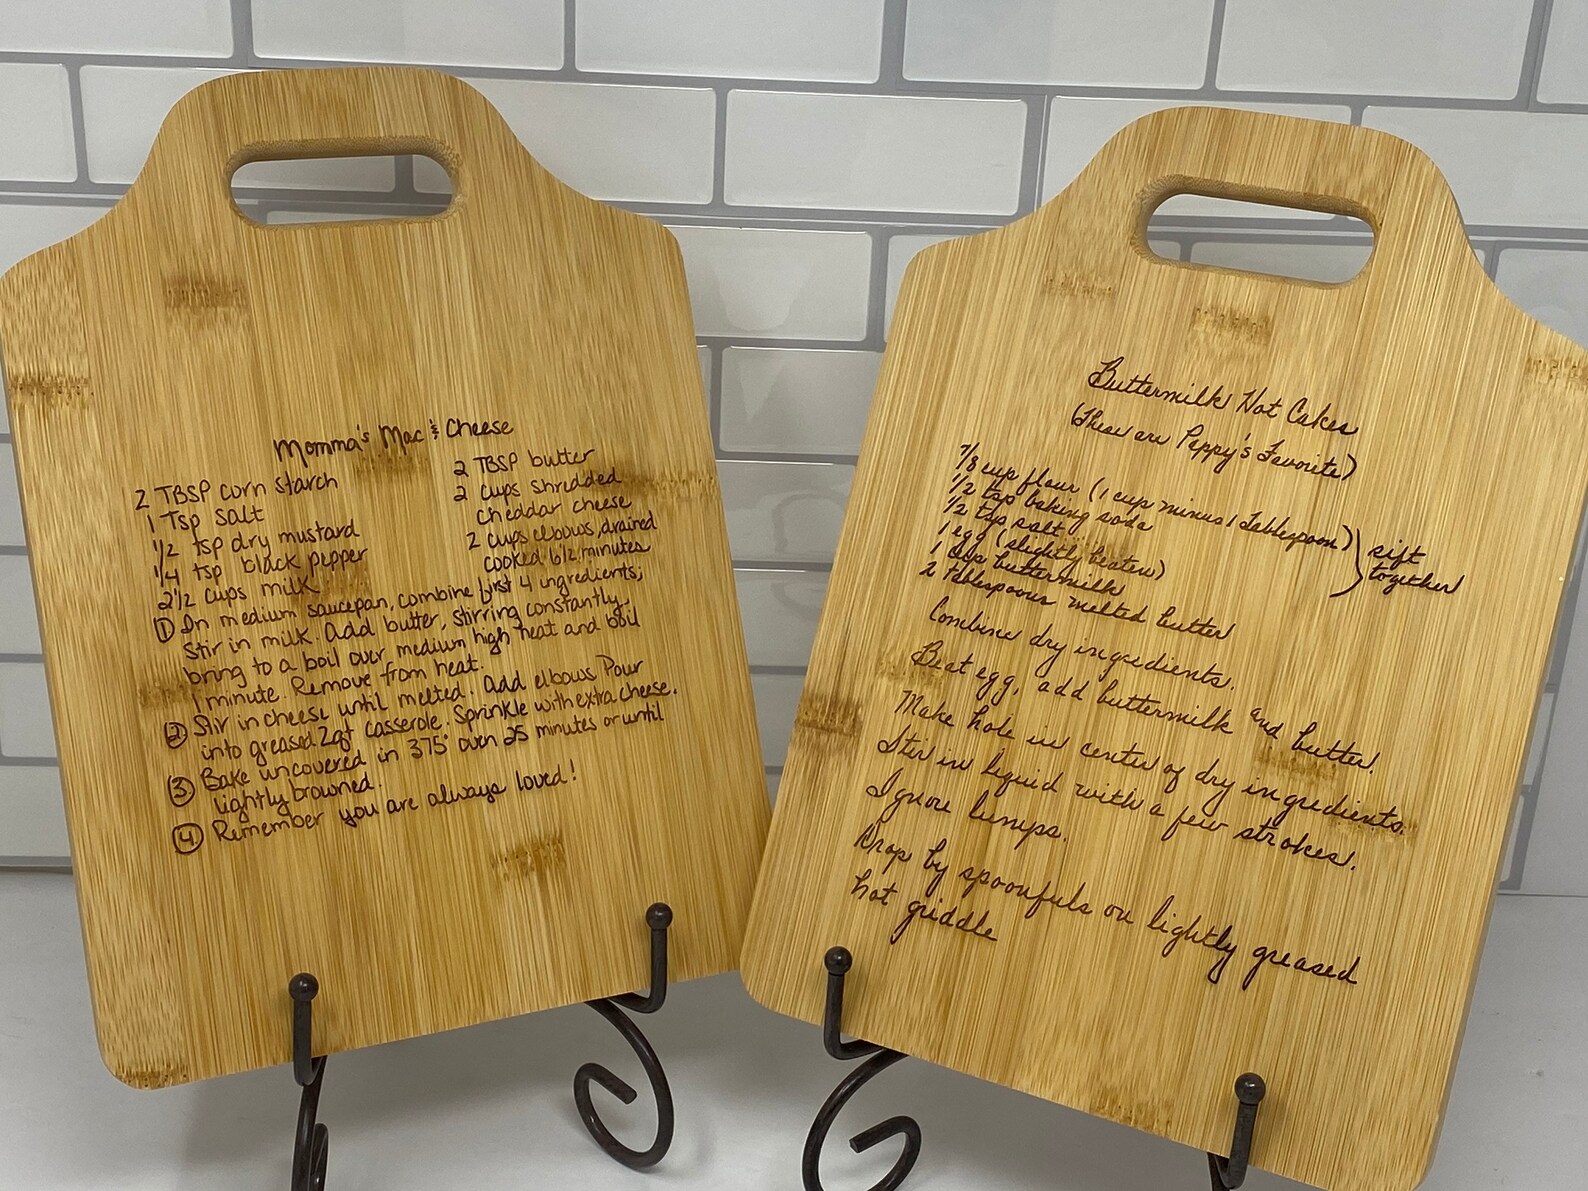 Momma's Mac & Cheese
2 TBSP corn starch
1 Tsp salt
1/2 tsp dry mustard
1/4 tsp black pepper
2 1/2 cups milk
2 TBSP butter
2 cups shredded
cheddar cheese
2 cups elbows, drained
cooked 6 1/2 minutes
① In medium saucepan, combine first 4 ingredients;
stir in milk. Add butter, stirring constantly,
bring to a boil over medium high heat and boil
1 minute. Remove from heat.
② Stir in cheese until melted. Add elbows Pour
into greased 2qt casserole. Sprinkle with extra cheese.
③ Bake uncovered in 375° oven 25 minutes or until
lightly browned.
④ Remember you are always loved!
Buttermilk Hot Cakes
(These are Peppy's Favorite)
7/8 cup flour (1 cup minus 1 Tablespoon)
1/2 tsp baking soda
1/2 tsp salt
sift
together
1 egg (slightly beaten)
1 cup buttermilk
2 tablespoons melted butter
Combine dry ingredients.
Beat egg, add buttermilk and butter.
Make hole in center of dry ingredients.
Stir in liquid with a few strokes.
Ignore lumps.
Drop by spoonfuls on lightly greased
hot griddle